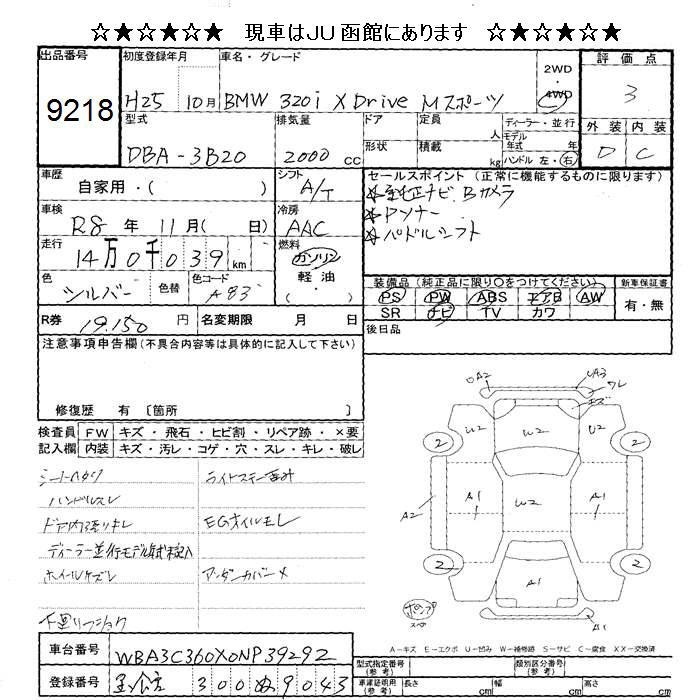 ☆★☆★☆★ 現車はJU函館にあります ☆★☆★☆★
出品番号 初度登録年月 車名・グレード 2WD・4WD 評価点
9218 H25 10月 BMW 320i XDrive Mスポーツ 3
型式 排気量 ドア 定員 人 ディーラー・並行 外装 内装
DBA-3B20 2000cc 形状 積載 kg モデル年式 年 ハンドル 左・右 D C
車歴 自家用・( ) シフト A/T セールスポイント(正常に機能するものに限ります)
車検 R8年 11月( 日) 冷房 AAC 純正ナビ Bカメラ
走行 14万0千039km 燃料 ガソリン・軽油・( ) パドルシフト
色 シルバー 色替 色コード A83 装備品(純正品に限り○をつけてください) 新車保証書
PS PW ABS エアB AW 有・無
SR ナビ TV カワ
R券 19,150円 名変期限 月 日 後日品
注意事項申告欄(不具合内容等は具体的に記入して下さい)
修復歴 有〔箇所 〕
検査員記入欄 FW キズ・飛石・ヒビ割・リペア跡・×要
内装 キズ・汚レ・コゲ・穴・スレ・キレ・破レ
シートヘタリ
ハンドルスレ
ドア内張りキレ EGオイルモレ
ディーラー並行モデル年式未記入
ホイールケズレ アンダーカバー×
UA2 UA3 ワレ
U2 W2 U2
2 2
A2 A1 W2 A1
2 2
A1
A1
A-キズ E-エクボ U-凹み W-補修跡 S-サビ C-腐食 XX-交換済
車台番号 WBA3C360X0NP39292 型式指定番号(参考) 類別区分番号(参考)
登録番号 300 ぬ 9043 車庫証明用(参考) 長さ cm 幅 cm 高さ cm